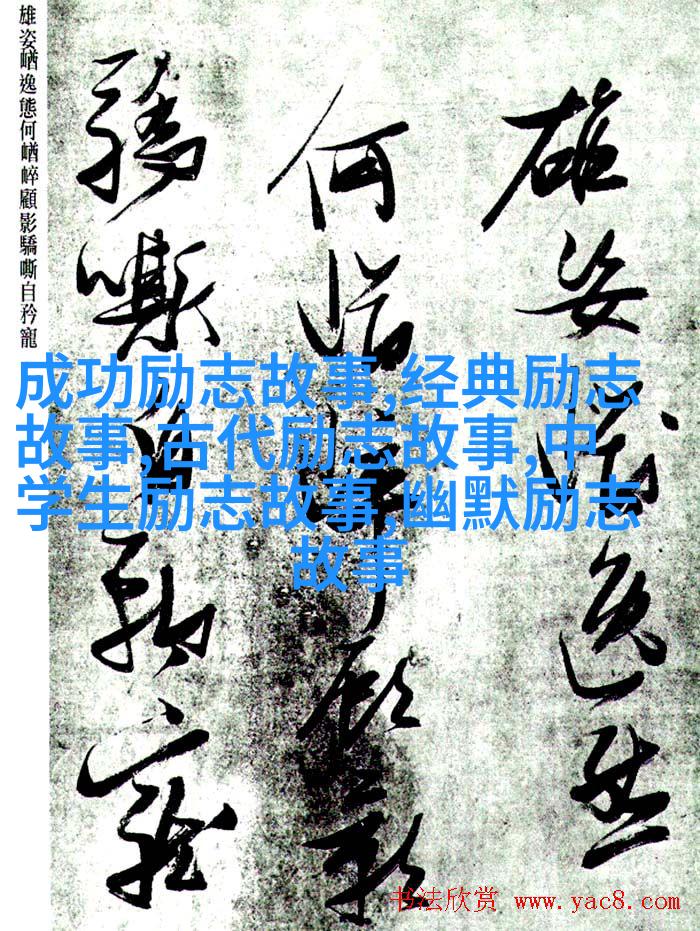 雄姿崷逸態
何崷崒顧影
驕嘶自矜寵
雄姿崷逸態何崷崒顧影驕嘶自矜寵
成功励志故事,经典励志
故事,古代励志故事,中
学生励志故事,幽默励志
故事
书法欣赏 www.yac8.com